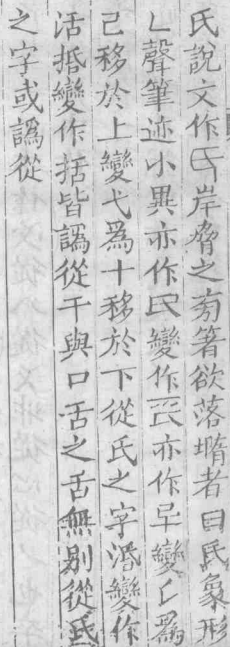 氏說文作氏岸脅之㫄箸欲落墮者曰氏象形
乀聲筆迹小異亦作氏變作互亦作𢆉變乀爲
己移於上變弋爲十移於下從氏之字湣變作
活抵變作括皆譌從干與口舌之舌無別從氐
之字或譌從